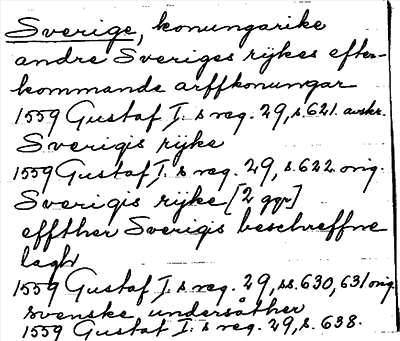 Sverige, konungarike
andre Sveriges rijkes efter-
kommande arffkonungar
1559 Gustaf I:s reg. 29, s. 621. avskr.
Sverigis rijke
1559 Gustaf I:s reg. 29, s. 622 orig.
Sverigis rijke [2 ggr]
effther Sverigis beschreffne
lagh
1559 Gustaf I:s reg. 29, ss. 630, 631 orig.
svenske, undersåther
1559 Gustaf I:s reg. 29, s. 638.